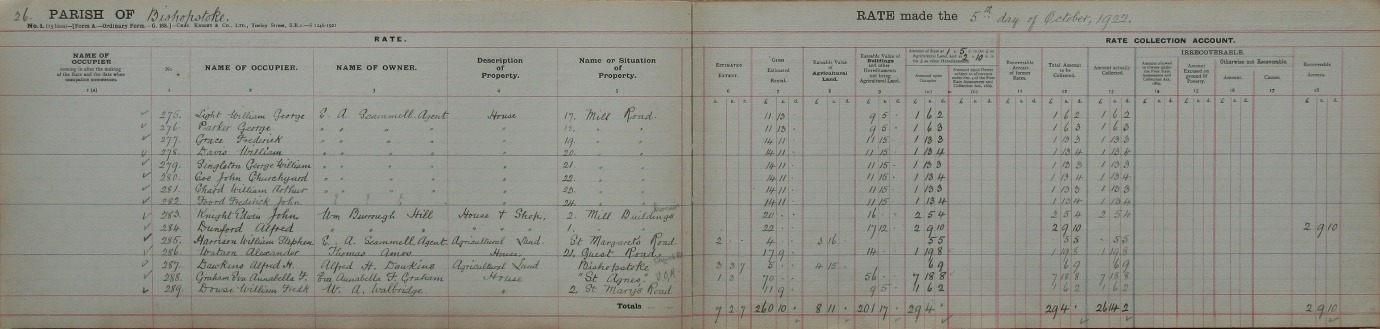 26. PARISH OF Bishopstoke.
RATE made the 5th day of October, 1922.
RATE.
RATE COLLECTION ACCOUNT.
NAME OF OCCUPIER
No.
NAME OF OCCUPIER.
NAME OF OWNER.
Description of Property.
Name or Situation of Property.
ESTIMATED EXTENT.
Gross Estimated Rental.
Rateable Value of Agricultural Land.
Rateable Value of Buildings and other Hereditaments not being Agricultural Land.
Total Amount to be Collected.
Amount actually Collected.
IRRECOVERABLE.
Otherwise not Recoverable.
Amount. Causes.
Recoverable Arrears.
275. Light William George E. A. Scammell. Agent House 17. Mill Road. 11 13 9 5 1 6 2 1 6 2 1 6 2
276. Parker George " " " " " 11 13 9 5 1 6 3 1 6 3 1 6 3
277. Grace Frederick " " " " 19. " " 14 11 11 15 1 13 3 1 13 3 1 13 3
278. Davis William " " " " 20. " " 14 11 11 15 1 13 4 1 13 4 1 13 4
279. Singleton George William " " " " 21. " " 14 11 11 15 1 13 3 1 13 3 1 13 3
280. Coe John Churchyard " " " " 22. " " 14 11 11 15 1 13 4 1 13 4 1 13 4
281. Chard William Arthur " " " " 23. " " 14 11 11 15 1 13 3 1 13 3 1 13 3
282. Foord Frederick John " 24. " " 14 11 11 15 1 13 4 1 13 4 1 13 4
283. Knight Edwin John Wm Burrough Hill House & Shop. 2. Mill Buildings 20 16 2 5 4 2 5 4 2 5 4
284. Dunford Alfred " " " " 1. " " 22 17 12 2 9 10 2 9 10 2 9 10
285. Harrison William Stephen E. A. Scammell. Agent. Agricultural Land. St Margaret's Road. 2 4 3 16 5 5 5 5 5 5
286. Watson Alexander Thomas Amos House. 21. Guest Road. 17 9 14 1 19 8 1 19 8 1 19 8
287. Dawkins Alfred H. Alfred H. Dawkins Agricultural Land Bishopstoke 3 3 7 5 4 15 6 9 6 9 6 9
288. Graham Eva Annabella F. Eva Annabella F. Graham House "St Agnes" 1 3 70 56 7 18 8 7 18 8 7 18 8
289. Dowse William Fredk W. A. Walbridge. " 2. St Mary's Road 11 9 9 5 1 6 2 1 6 2 1 6 2
Totals 7 2 7 260 10 8 11 201 17 29 4 29 4 26 14 2 2 9 10